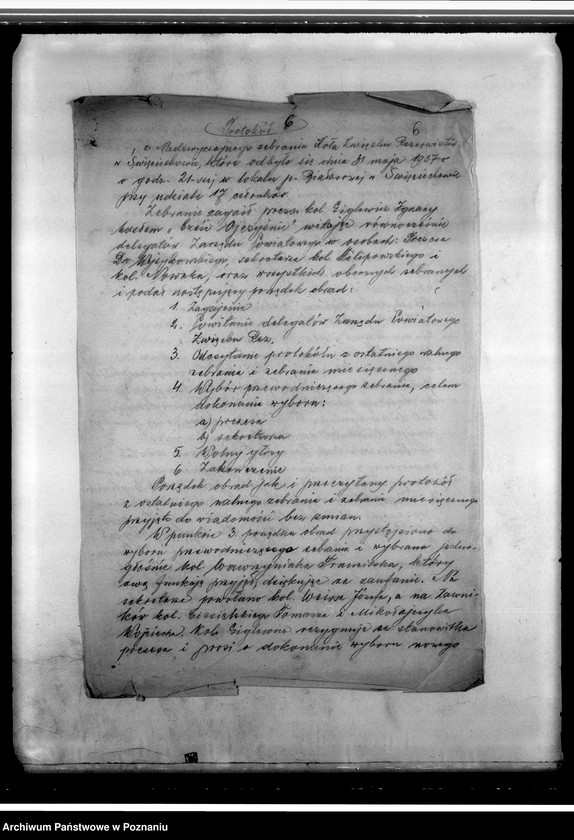 Protokół 6
6
z Nadzwyczajnego zebrania Koła Związku Rezerwistów
w Święciechowie, które odbyło się dnia 31 maja 1937 r
o godz. 21-szej w lokalu p. w Święciechowie
przy udziale 17 członków.
Zebranie zagaił prezes kol Giglewicz Ignacy
hasłem „Cześć Ojczyźnie" witając równocześnie
delegatów Zarządu Powiatowego w osobach: Prezesa
Dr. sekretarza kol. Filipowskiego i
kol. Nowaka, oraz wszystkich obecnych zebranych
i podał następujący porządek obrad:
1. Zagajenie
2. Powitanie delegatów Zarządu Powiatowego
Związku Rez.
3. Odczytanie protokółu z ostatniego walnego
zebrania i zebrania miesięcznego
4. Wybór przewodniczącego zebrania, celem
dokonania wyboru:
a) prezesa
b) sekretarza
5. Wolne głosy
6 Zakończenie
Porządek obrad jak i przeczytany protokół
z ostatniego walnego zebrania i zebrania miesięcznego
przyjęto do wiadomości bez zmian.
W punkcie 3. porządku obrad przystąpiono do
wyboru przewodniczącego zebania i wybrano jedno-
głośnie kol Wawrzyniaka Franciszka, który
swą funkcję przyjął dziękując za zaufanie. Na
sekretarza powołano kol. Weissa Józefa, a na ławni-
ków kol. Tomasza i Mikołajczyka
Wojciecha. Kol. Giglewicz rezygnuje ze stanowiska
prezesa i prosi o dokonanie wyboru nowego
Archiwum Państwowe w Poznaniu